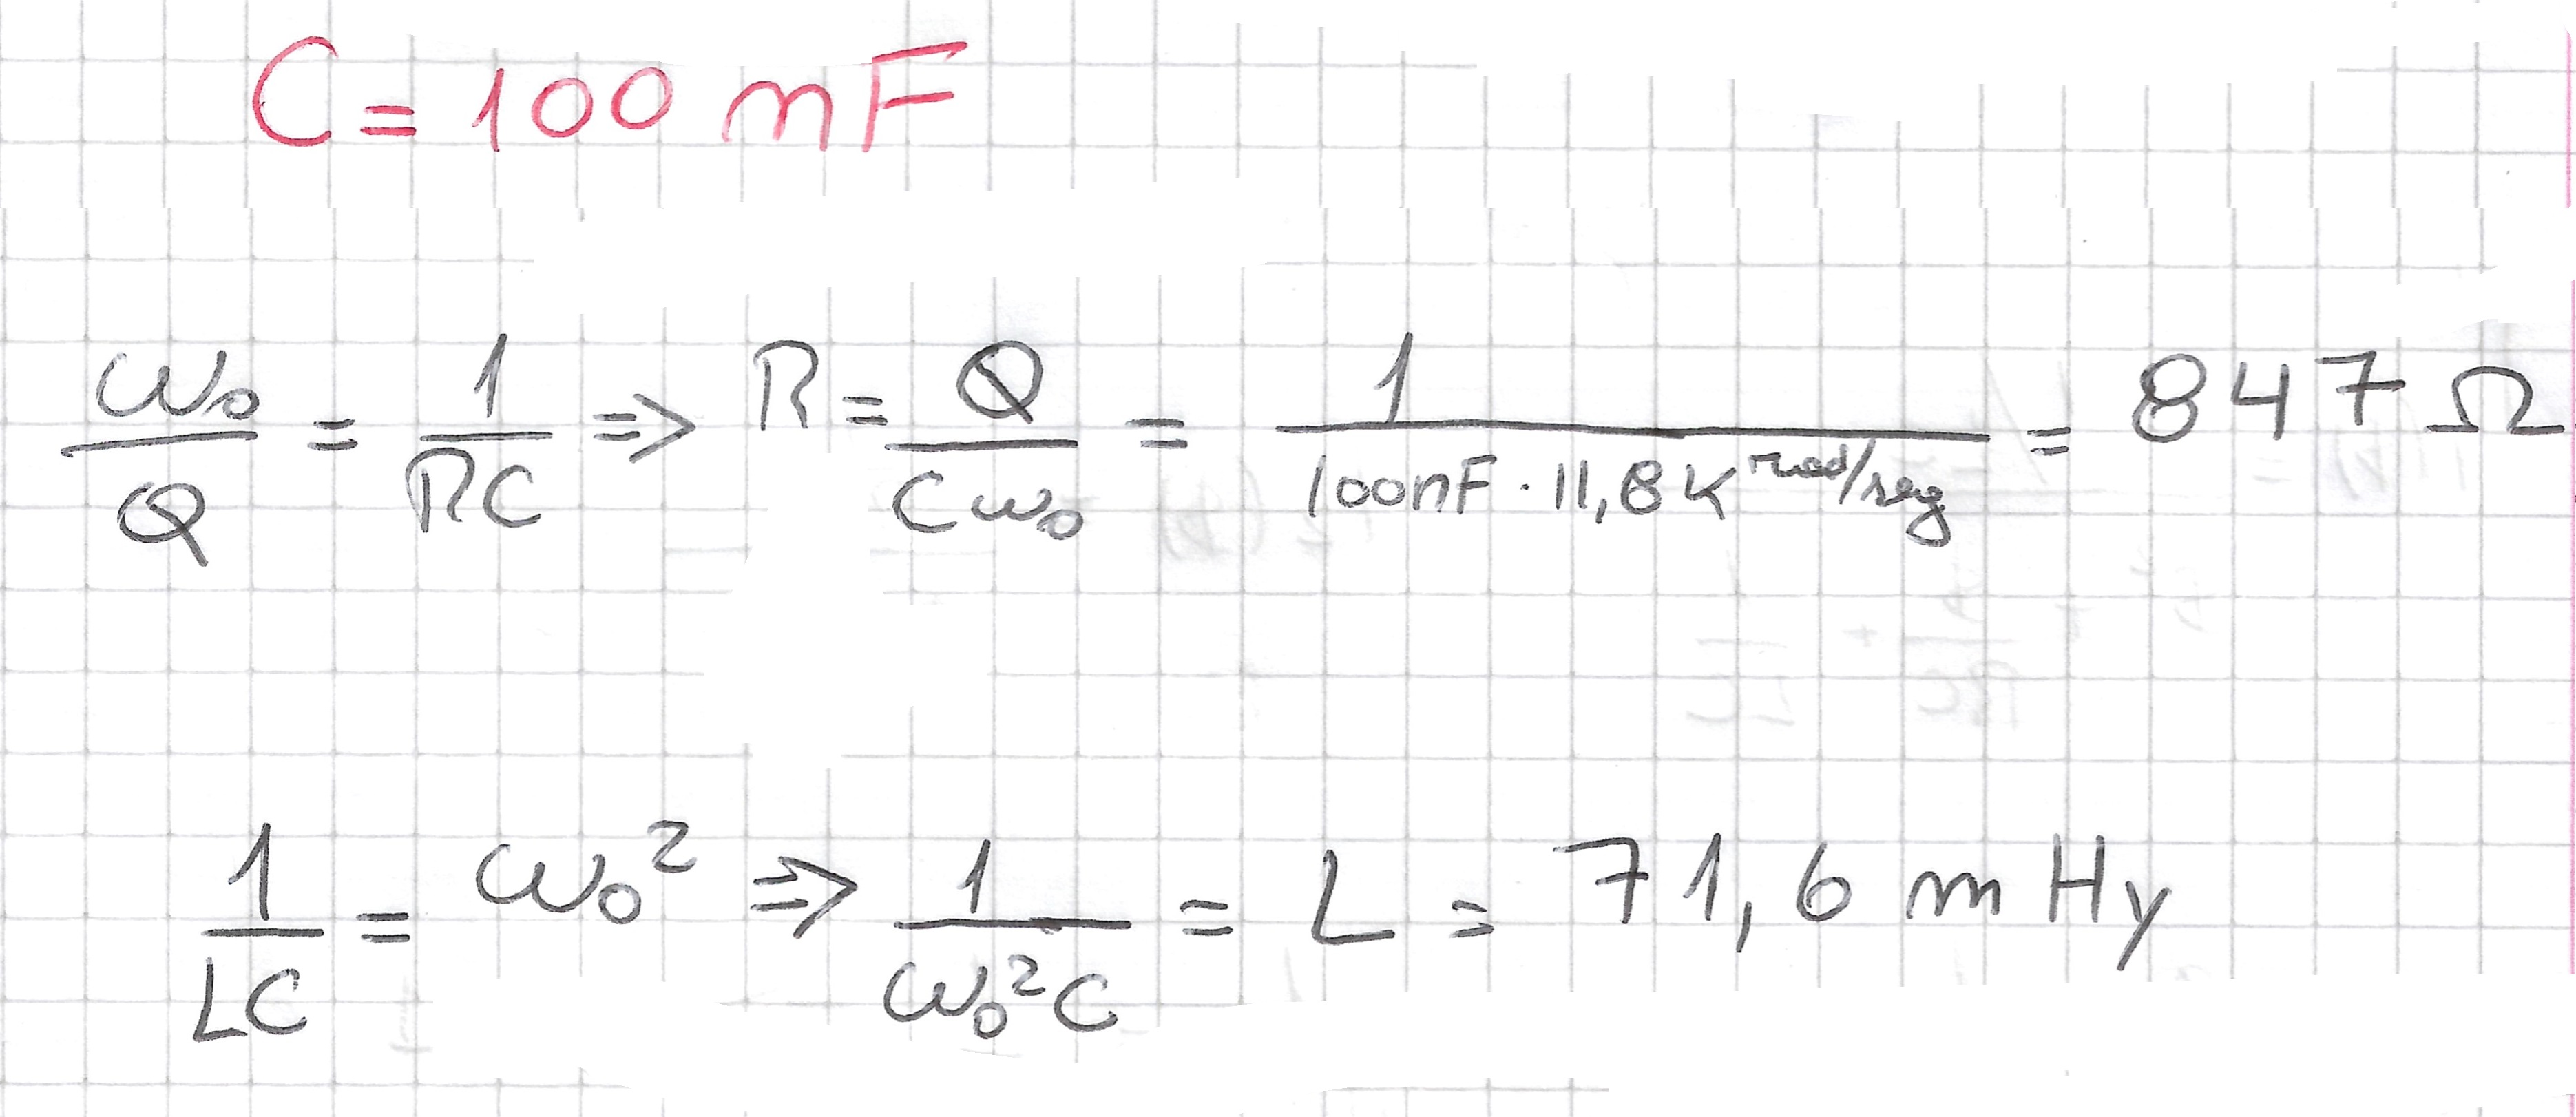 C = 100 nF
ω₀/Q = 1/RC ⇒ R = Q/Cω₀ = 1/(100nF · 11,8 K rad/seg) = 847 Ω
1/LC = ω₀² ⇒ 1/ω₀²C = L = 71,6 m Hy